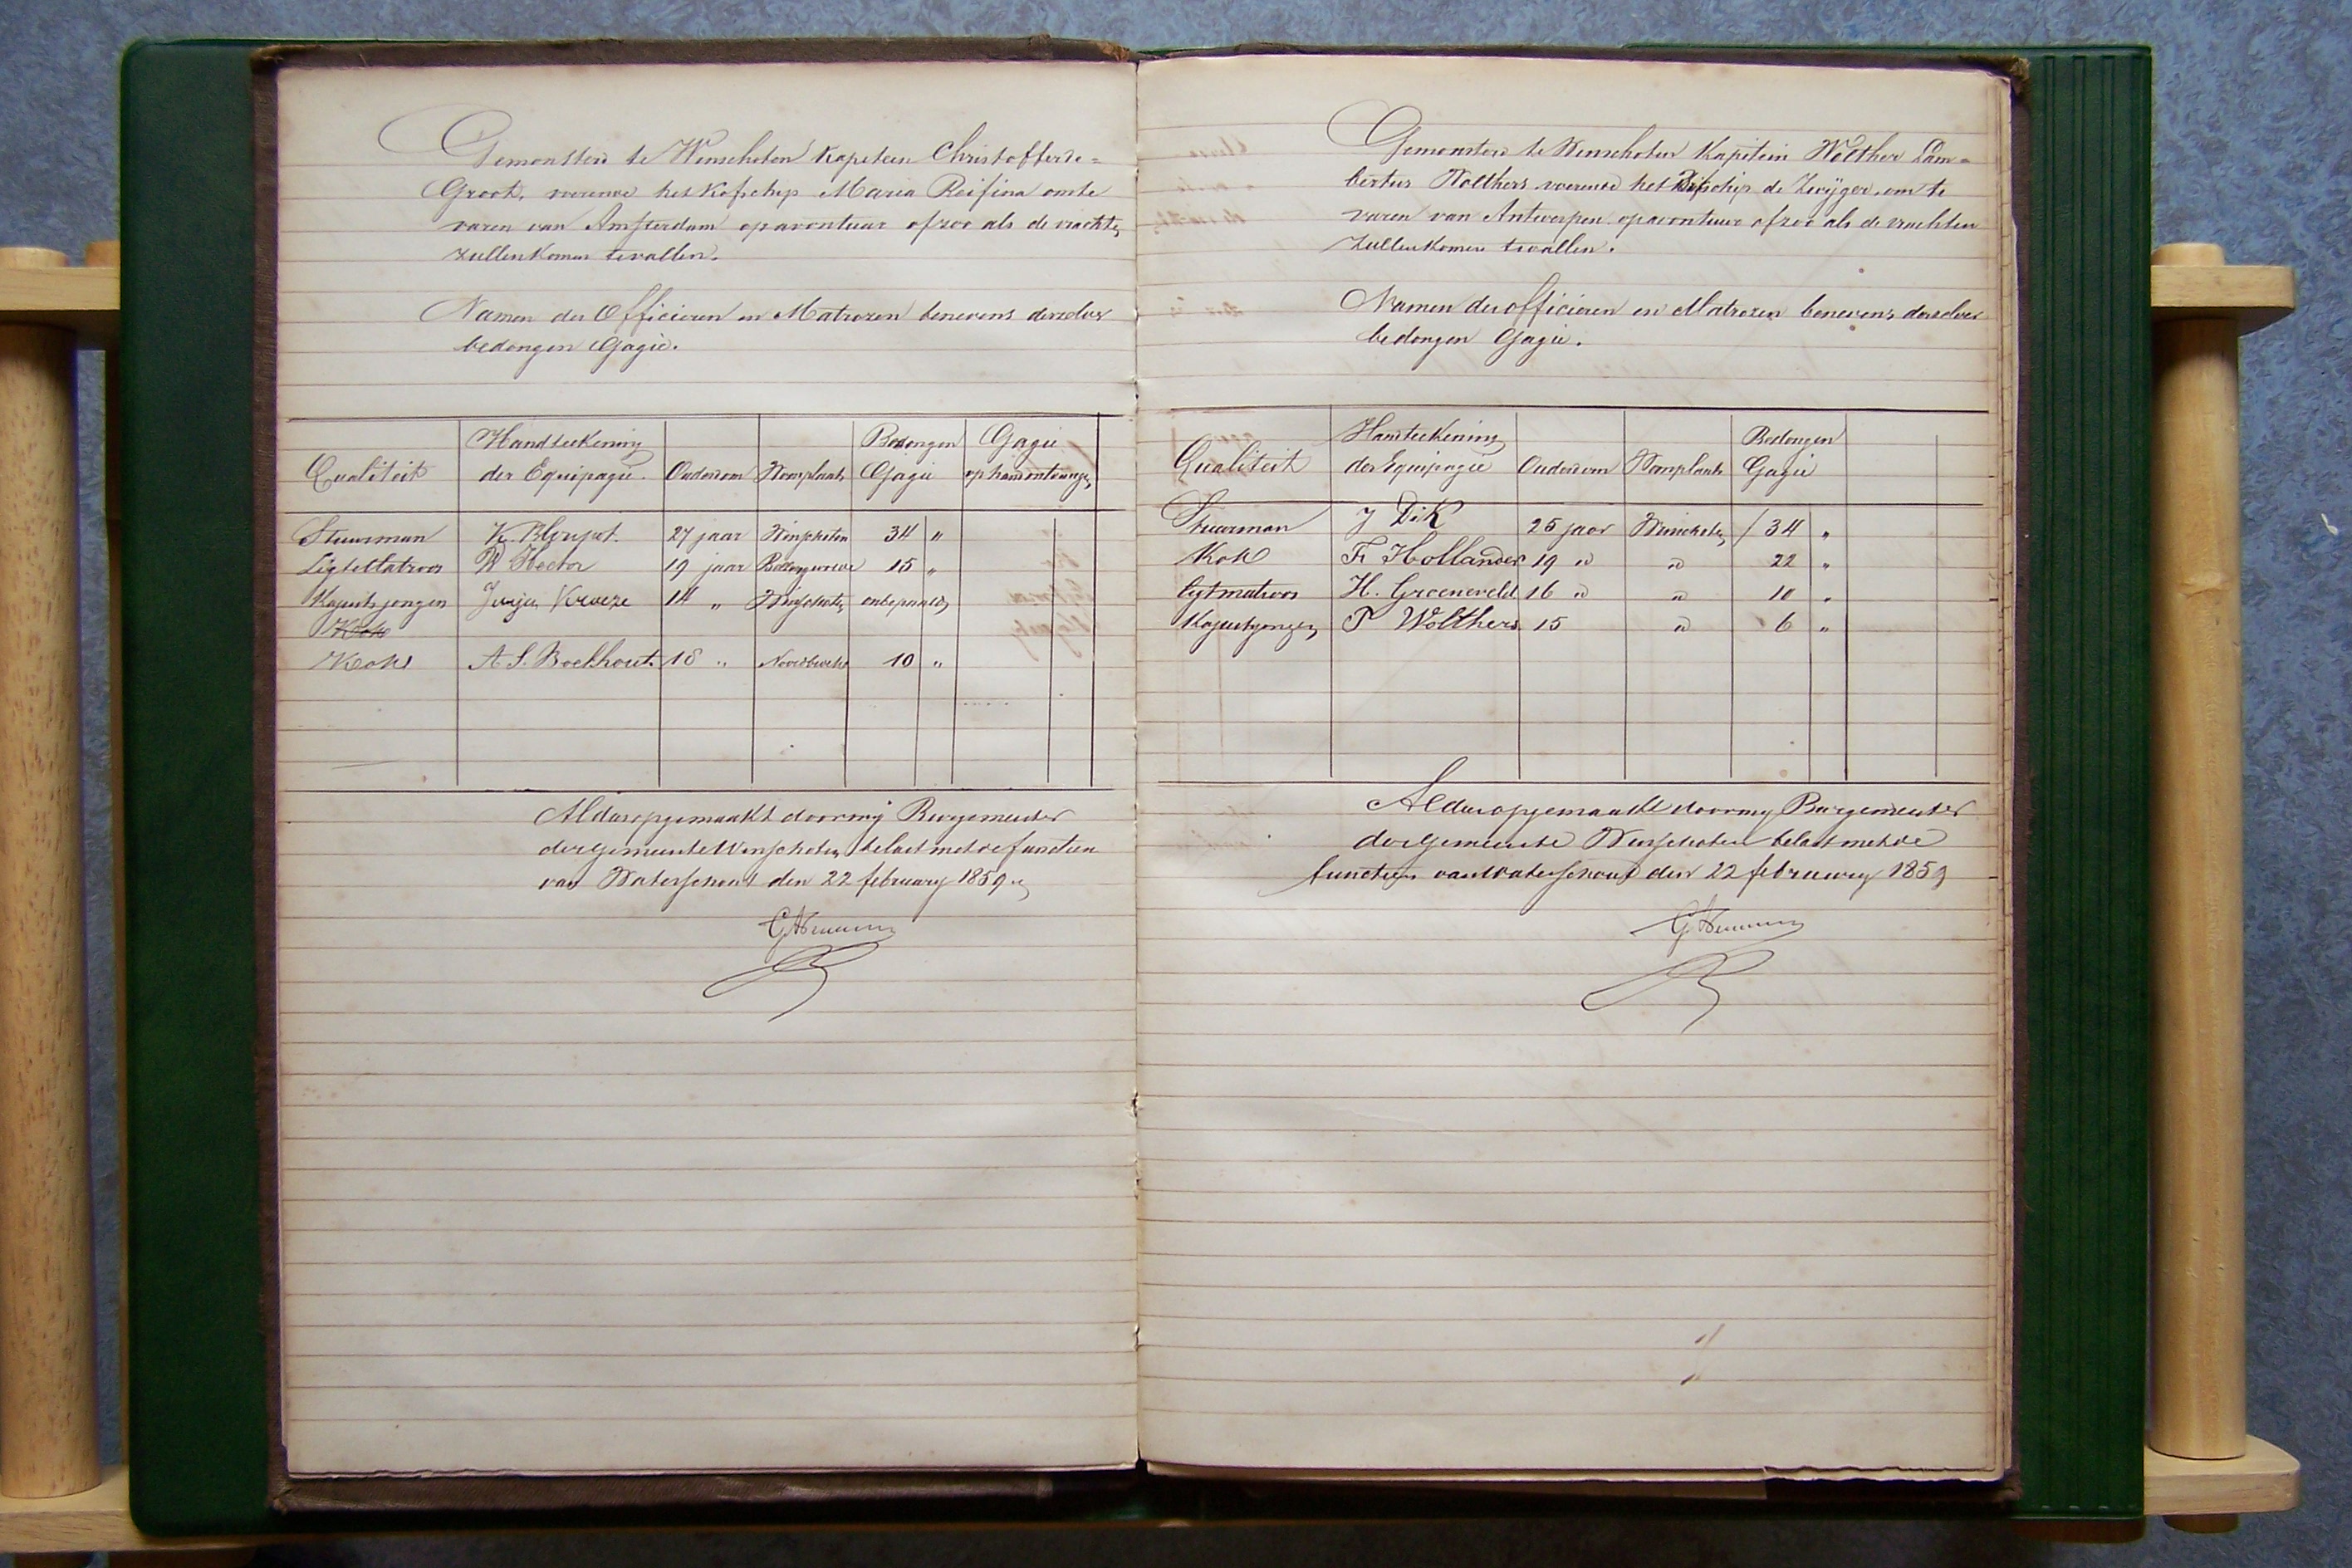 Gemonsterd te Winschoten Kapitein Christoffer de=
Groot, voerende het Kofschip Maria Reifina om te
varen van Amsterdam op avontuur of zoo als de vrachten
zullen komen te vallen.
Namen der Officieren en Matrozen benevens derzelver
bedongen Gagie.
Qualiteit Handteekening der Equipagie. Ouderdom Woonplaats Bedongen Gagie Gagie op hand ontvangen
Stuurman K. 27 jaar Winschoten 34 "
Ligte Matroos R Hector 19 jaar 15 "
Kajuitsjongen Jurjen Kroeze 14 " Winschoten onbepaald
Kok
Kok A. S. Boekhout. 18 " Noordbroek 10 "
Aldus opgemaakt door mij Burgemeester
der gemeente Winschoten belast met de functien
van Waterschout den 22 february 1859.
Gemonsterd te Winschoten Kapitein Wolther Lam=
bertus Wolthers voerende het schip de Zwijger om te
varen van Antwerpen op avontuur of zoo als de vrachten
zullen komen te vallen.
Namen der officieren en Matrozen benevens derzelver
bedongen Gagie.
Qualiteit Handteekening der Equipagie Ouderdom Woonplaats Bedongen Gagie
Stuurman J Dik 25 jaar Winschoten f 34 "
Kok F. Hollander 19 " " 22 "
ligtmatroos H. Groeneveld 16 " " 10 "
Kajuitsjongen P Wolthers 15 " 6 "
Aldus opgemaakt door mij Burgemeester
der gemeente Winschoten belast met de
functien van Waterschout den 22 february 1859